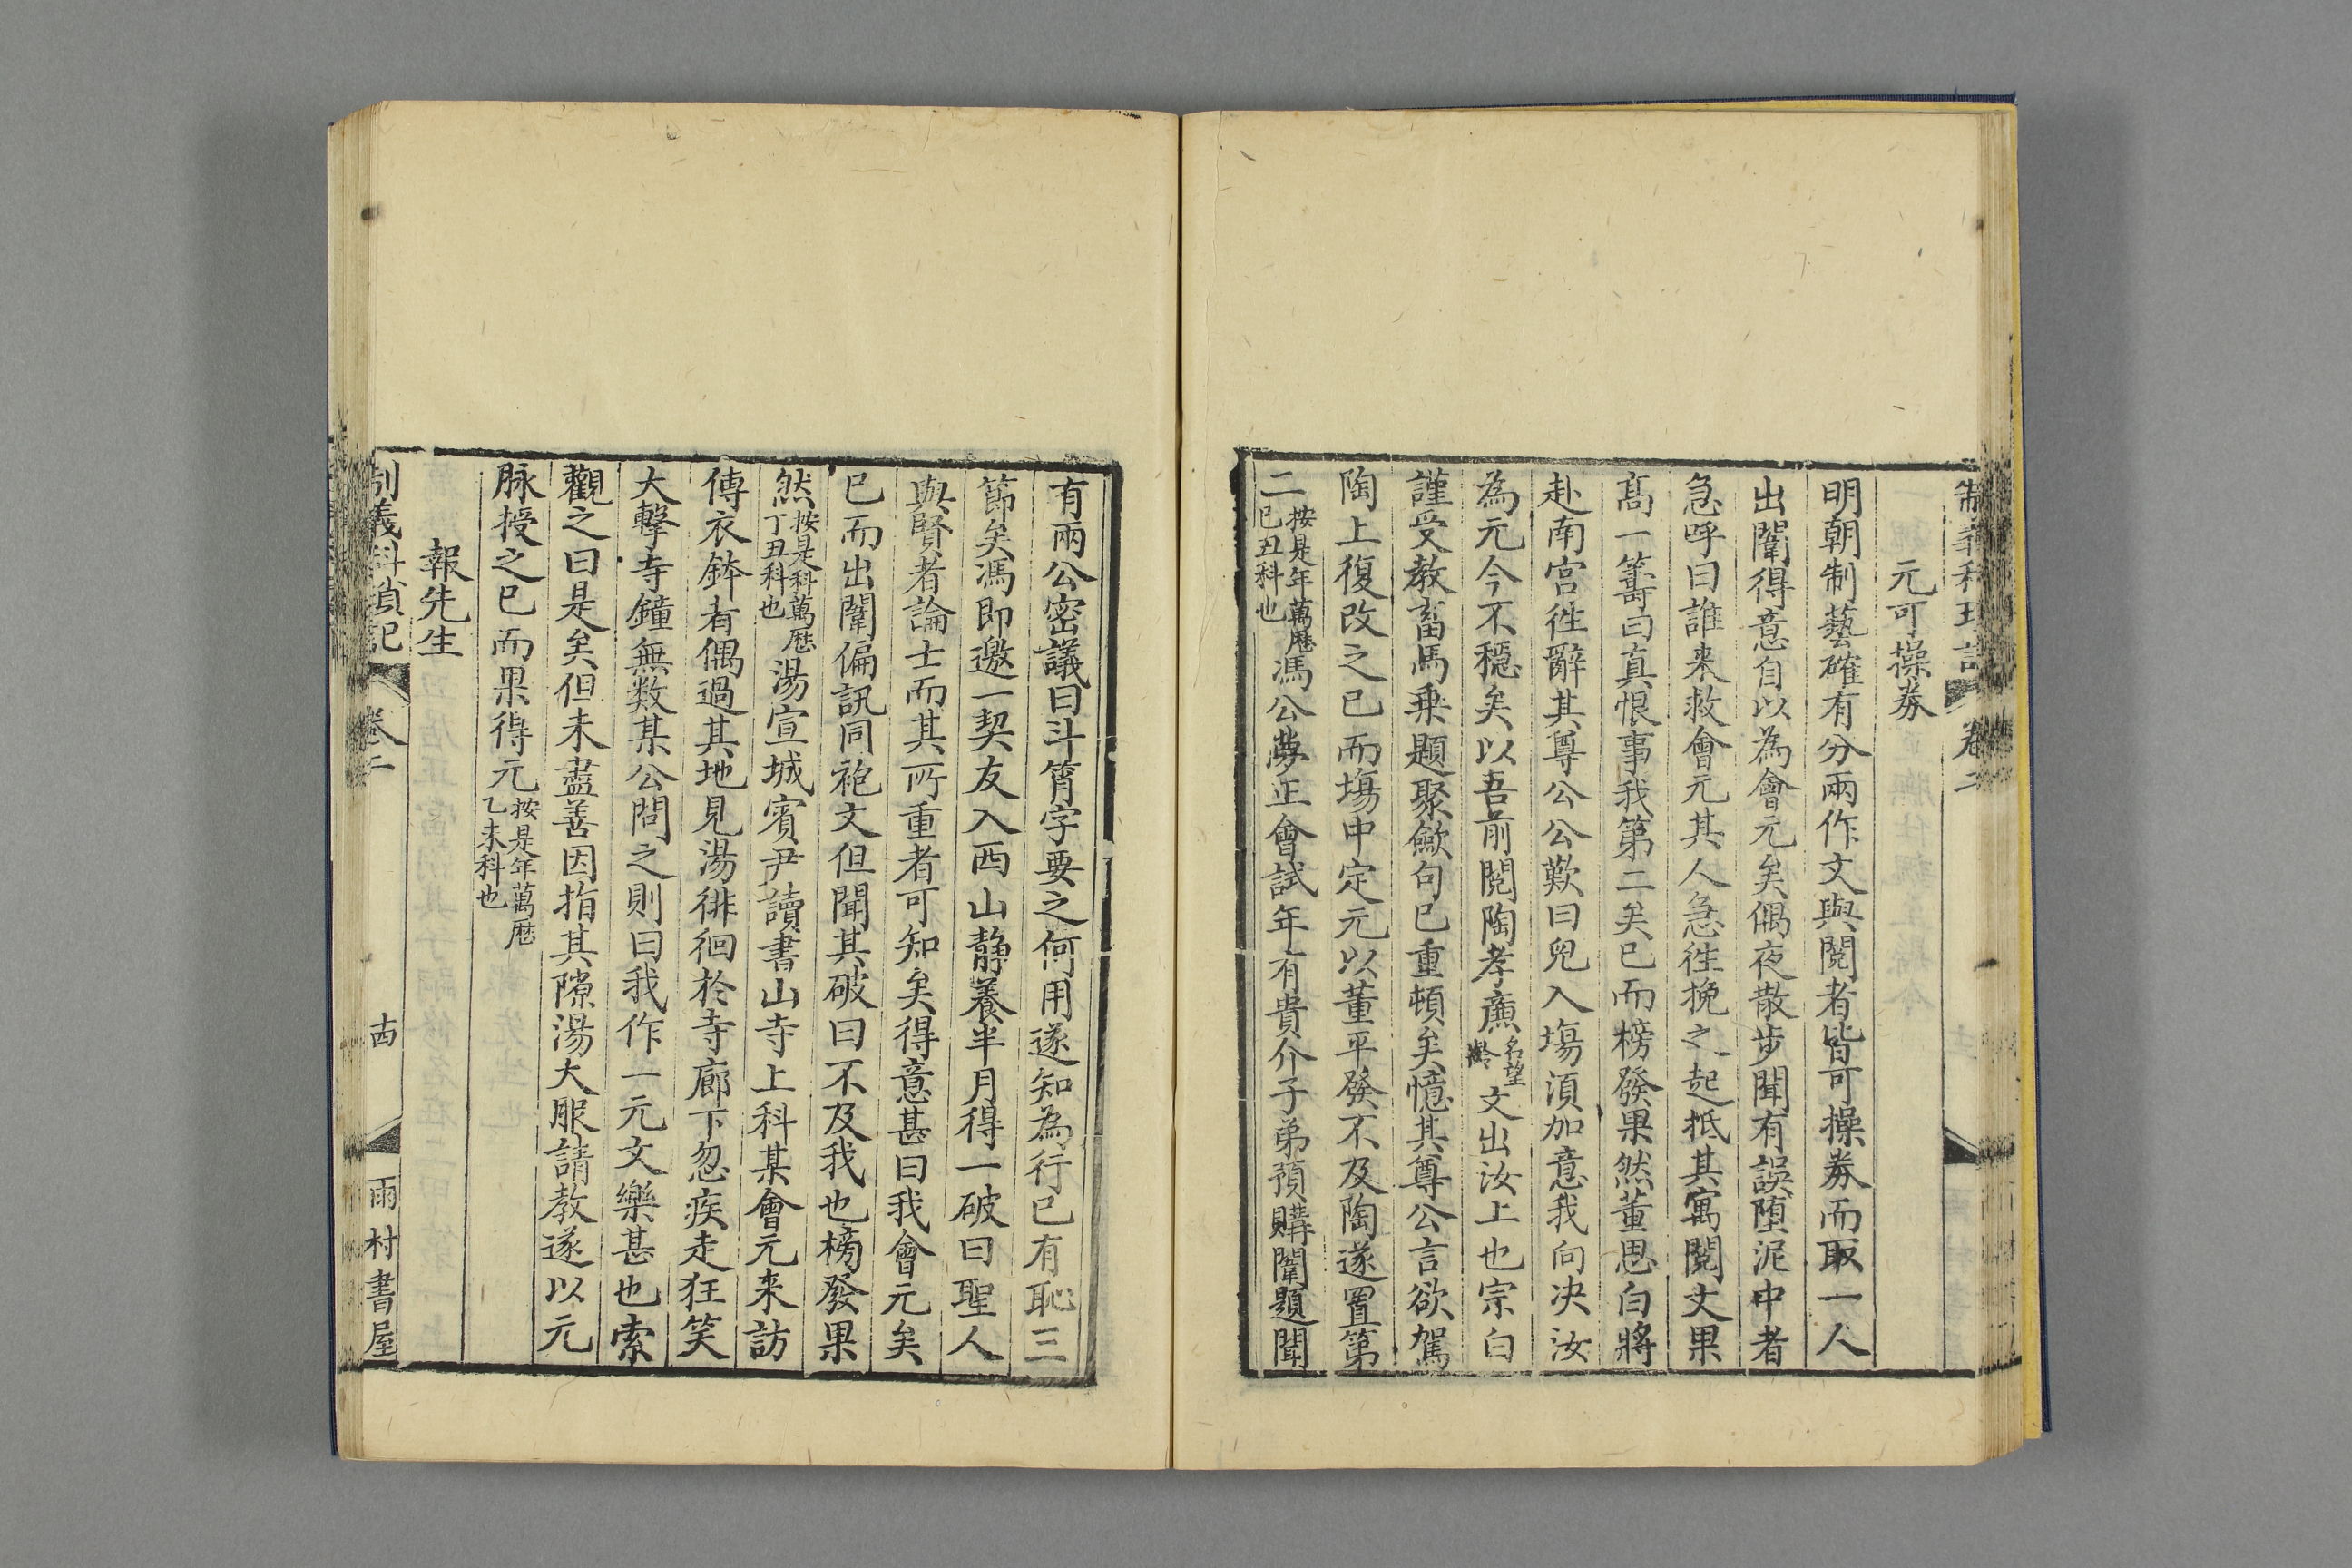 制義科瑣記 卷二
元可操券
明朝制藝確有分兩作文與閱者皆可操券而取一人
出闈得意自以為會元矣偶夜散步聞有誤墮泥中者
急呼曰誰来救會元其人急徃挽之一起抵其寓閱文果
髙一籌曰真恨事我第二矣已而榜發果然董思白將
赴南宫徃辭其尊公公歎曰兒入塲湏加意我向决汝
為元今不穩矣以吾前閱陶孝亷名望齡文出汝上也宗白
謹受教畜馬乗題聚歛句已重頓矣憶其尊公言欲駕
陶上復改之已而塲中定元以董平發不及陶遂置第
二按是年萬厯己丑科也馮公夢正會試年有貴介子弟預購闈題聞
有兩公密議曰斗筲字要之何用遂知為行已有恥三
節矣馮即邀一契友入西山静養半月得一破曰聖人
與賢者論士而其所重者可知矣得意甚曰我會元矣
已而出闈偏訊同袍文但聞其破曰不及我也榜發果
然按是科萬厯丁丑科也湯宣城賓尹讀書山寺上科某會元来訪
傳衣鉢者偶過其地見湯徘徊於寺廊下忽疾走狂笑
大擊寺鐘無数某公問之則曰我作一元文樂甚也索
觀之曰是矣但未盡善因指其隙湯大服請教遂以元
脉授之已而果得元按是年萬厯乙未科也
報先生
制義科瑣記 卷二 十四 雨村書屋